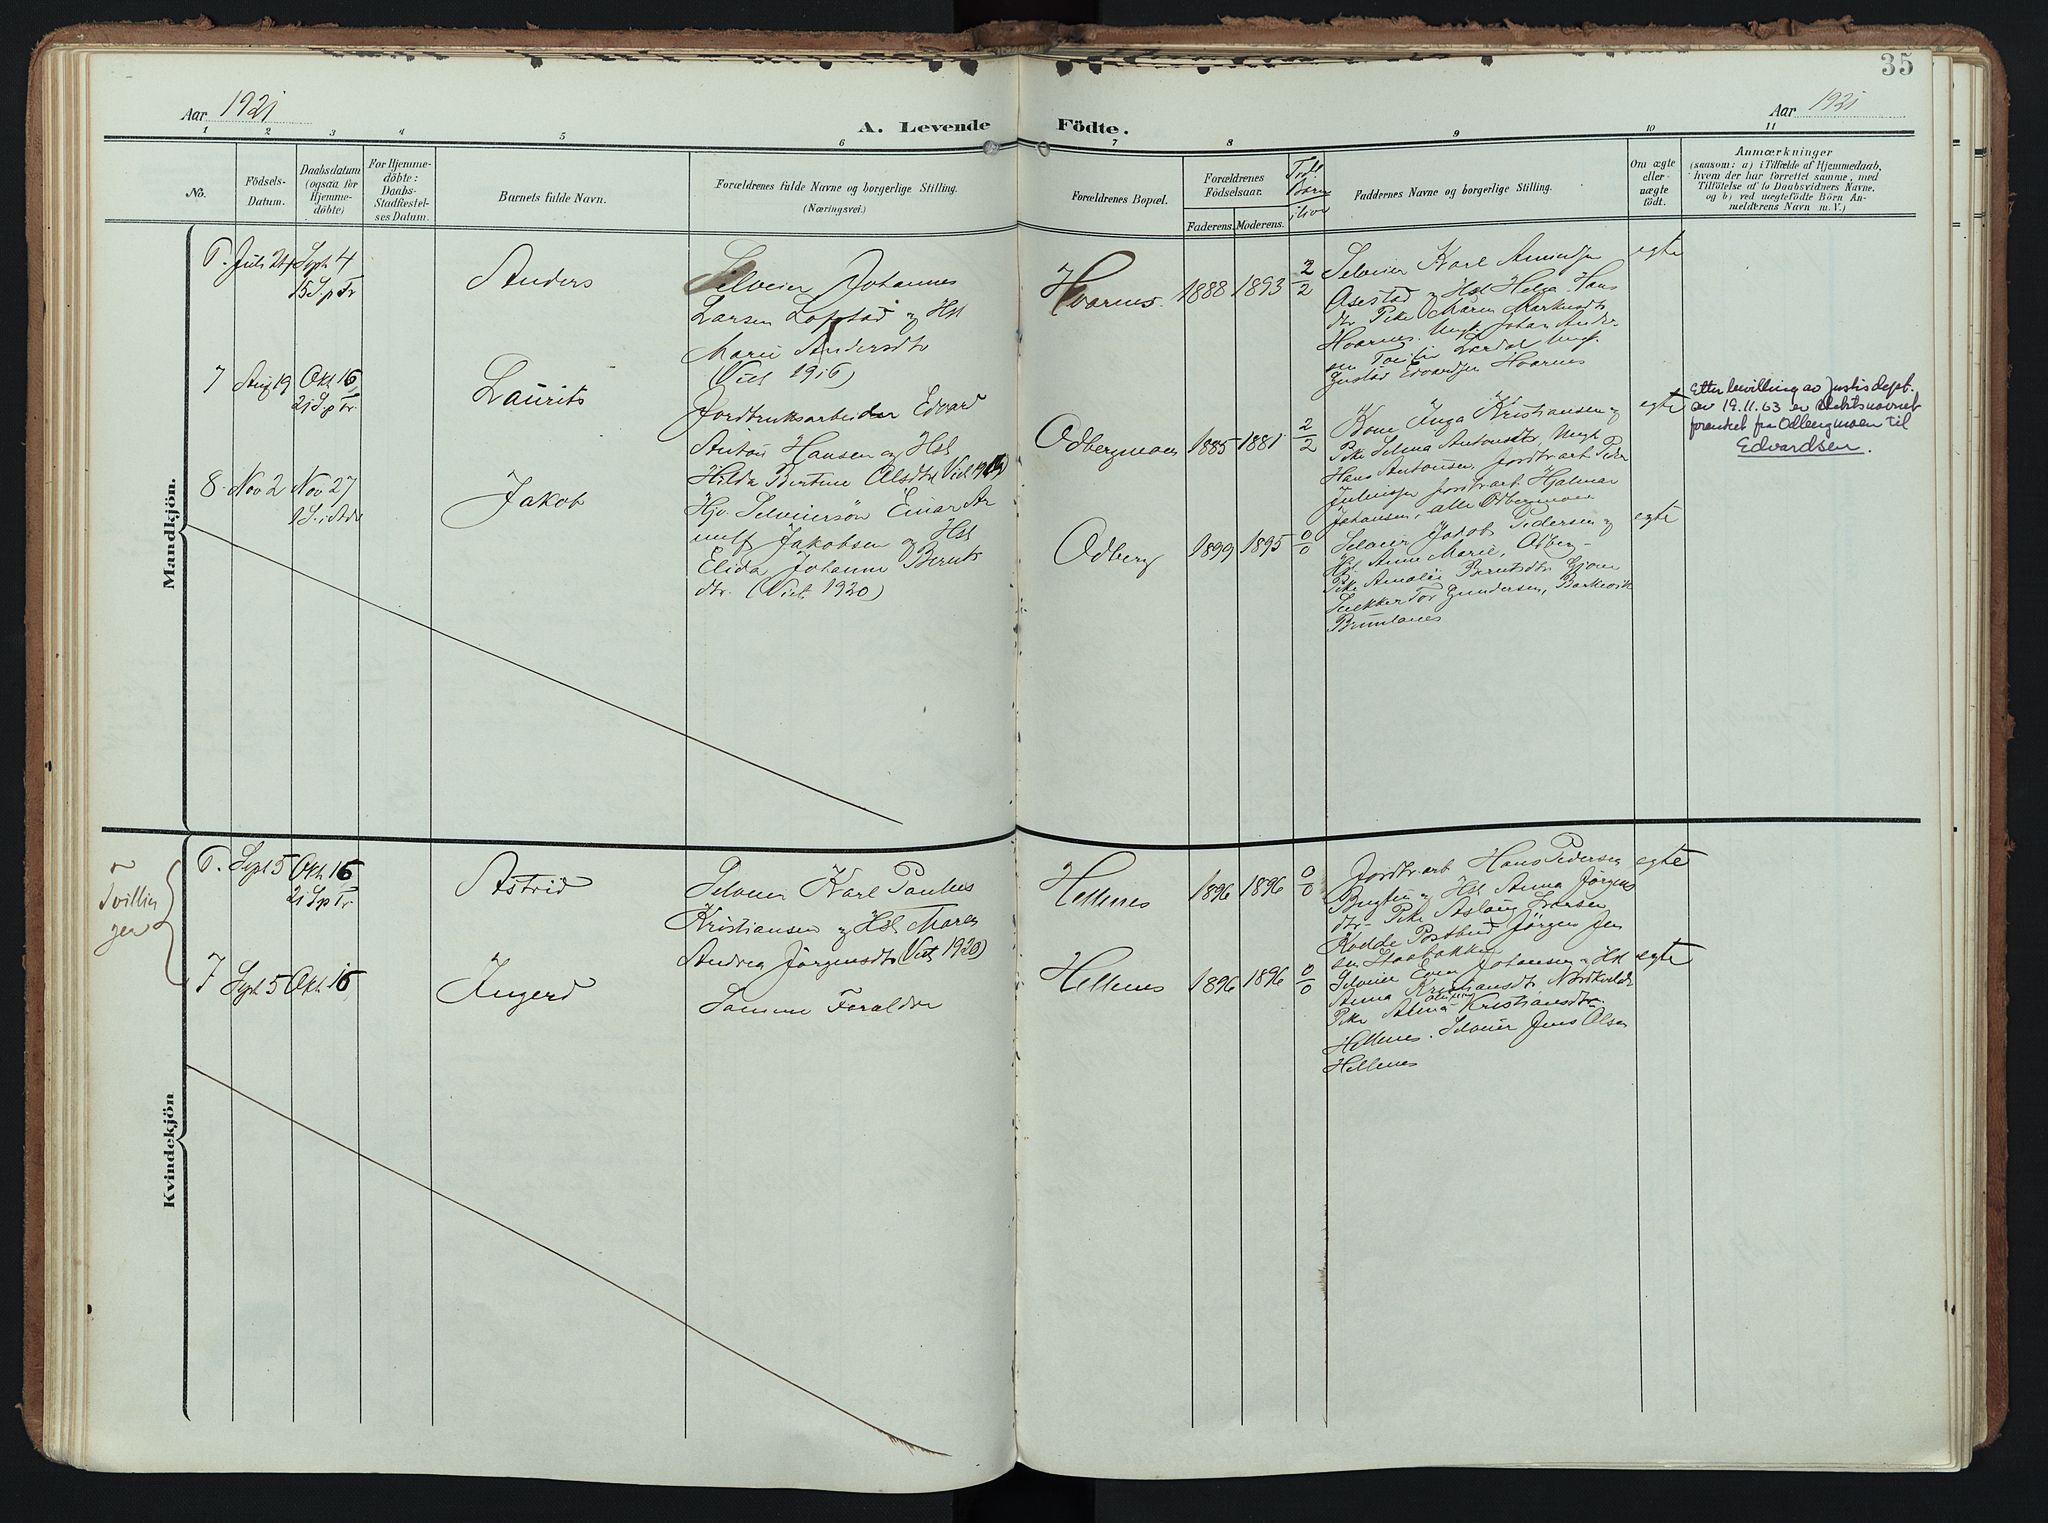 35
Aar 1921
Aar 1921
A. Levende Födte.
1 2 3 4 5 6 7 8 9 10 11
No.
Födsels-
Datum.
Daabsdatum
(ogsaa for
Hjemme-
döbte)
For Hjemme-
döbte:
Daabs-
Stadfæstel-
ses Datum.
Barnets fulde Navn.
Forældrenes fulde Navne og borgerlige Stilling.
(Næringsvei.)
Forældrenes Bopæl.
Forældrenes
Födselsaar.
Faderens. Moderens.
Børn
Faddernes Navne og borgerlige Stilling.
Om ægte
eller
uægte
födt.
Anmærkninger
(saasom: a) i Tilfælde af Hjemmedaab,
hvem der har forrettet samme, med
Tilföielse af to Daabsvidners Navne,
og b) ved uægtefödte Börn An-
melderens Navn m. V.)
Mandkjön.
6. Juli 24 Sept 4
15 S p Tr
Anders
Selveier Johannes
Larsen og Hst
Marie Andersdtr
(Viet 1916)
Hvarnes 1888 1893 2/2
Selveier Karl
Aasestad og Hst Helga Hans
dtr Pike Maren
Hvarnes. Ungk. Johan Ander-
sen Lardal Ungk.
Gustav Edvardsen Hvarnes
egte
7 Aug 19 Okt 16
21 S p Tr.
Laurits
Jordbruksarbeider Edvard
Anton Hansen og Hst
Hilda Bertine Olsdtr
Odbergmoen 1885 1881 2/2
Kone Inga Kristiansen og
Pike Selma Antonsdtr, Ungk
Hans Antonsen, Jordbr arb Peder
Julinssen Jordbr. arb Hjalmar
Johansen, alle Odbergmoen
egte
Etter bevilling av Justisdept.
av 19.11.63 er slektsnavnet
forandret fra Odbergmoen til
Edvardsen.
8. Nov 2 Nov 27
1 S. i Adv
Jakob
Hjv. Selveiersøn Einar Ar
nulf Jakobsen og Hst
Elida Johanne Bernts
dtr. (Viet 1920)
Odberg 1899 1895 0/0
Selveier Jakob Pedersen og
Hst. Anne Marie, Odberg -
Pike Amalie Berntsdtr
Snekker Tor Gundersen, Barkevik
Brunlanes
egte
Kvindekjön
Tvillin
ger
6. Sept 5 Okt 16
21 S p Tr
Astrid
Selveier Karl Paulus
Kristiansen og Hst Maren
Andrea Jørgensdtr (Viet 1920)
Hellenes 1896 1896 0/0
Jordbr. arb Hans Pedersen
og Hst Anna Jørgens
dtr. Pike Aslaug Larsen
Kodde Postbud Jørgen Jen
sen
egte
7 Sept 5 Okt 16
Ingerd
Samme Foræeldre
Hellenes 1896 1896 0/0
Selveier Even Johansen og Hst
Anna Kristiansdtr
Pike Alma Kristiansdtr.
Hellenes. Selveier Jens Olsen
Hellenes
egte